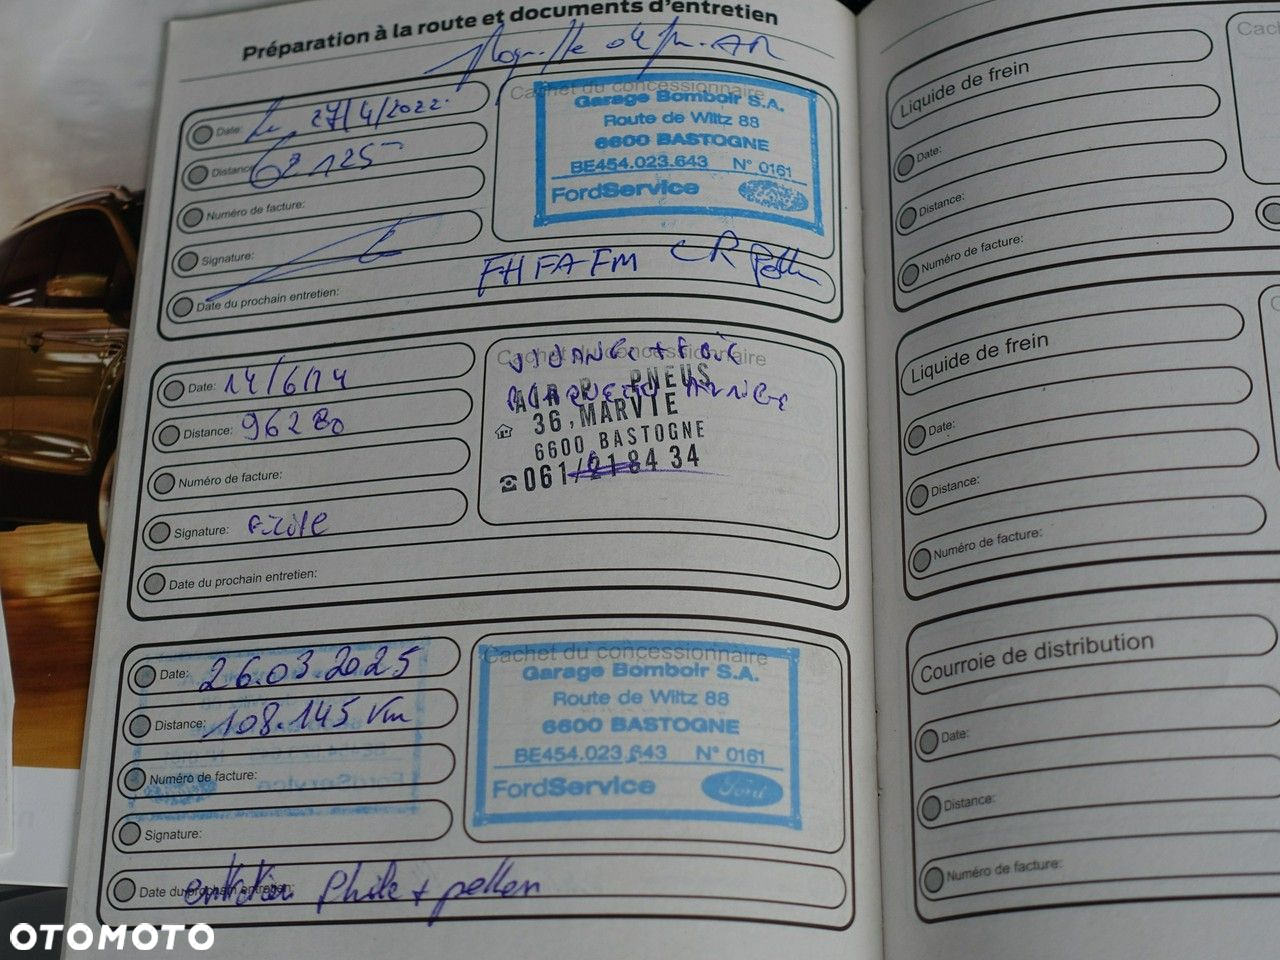 Préparation à la route et documents d'entretien
AR
Cachet du concessionnaire
Date: Le 27/4/2022.
Distance: 62125
Numéro de facture:
Signature:
Date du prochain entretien:
Garage Bomboir S.A.
Route de Wiltz 88
6600 BASTOGNE
BE454.023.643 N° 0161
FordService
FH FA FM CR Pollen
Date: 14/6/
Distance: 96280
Numéro de facture:
Signature:
Date du prochain entretien:
Cachet du concessionnaire
AIR P. PNEUS
36, MARVIE
6600 BASTOGNE
061/ 84 34
Date: 26.03.2025
Distance: 108.145 km
Numéro de facture:
Signature:
Date du prochain entretien:
entretien + pollen
Cachet du concessionnaire
Garage Bomboir S.A.
Route de Wiltz 88
6600 BASTOGNE
BE454.023.643 N° 0161
FordService Ford
Liquide de frein
Date:
Distance:
Numéro de facture:
Liquide de frein
Date:
Distance:
Numéro de facture:
Courroie de distribution
Date:
Distance:
Numéro de facture:
OTOMOTO